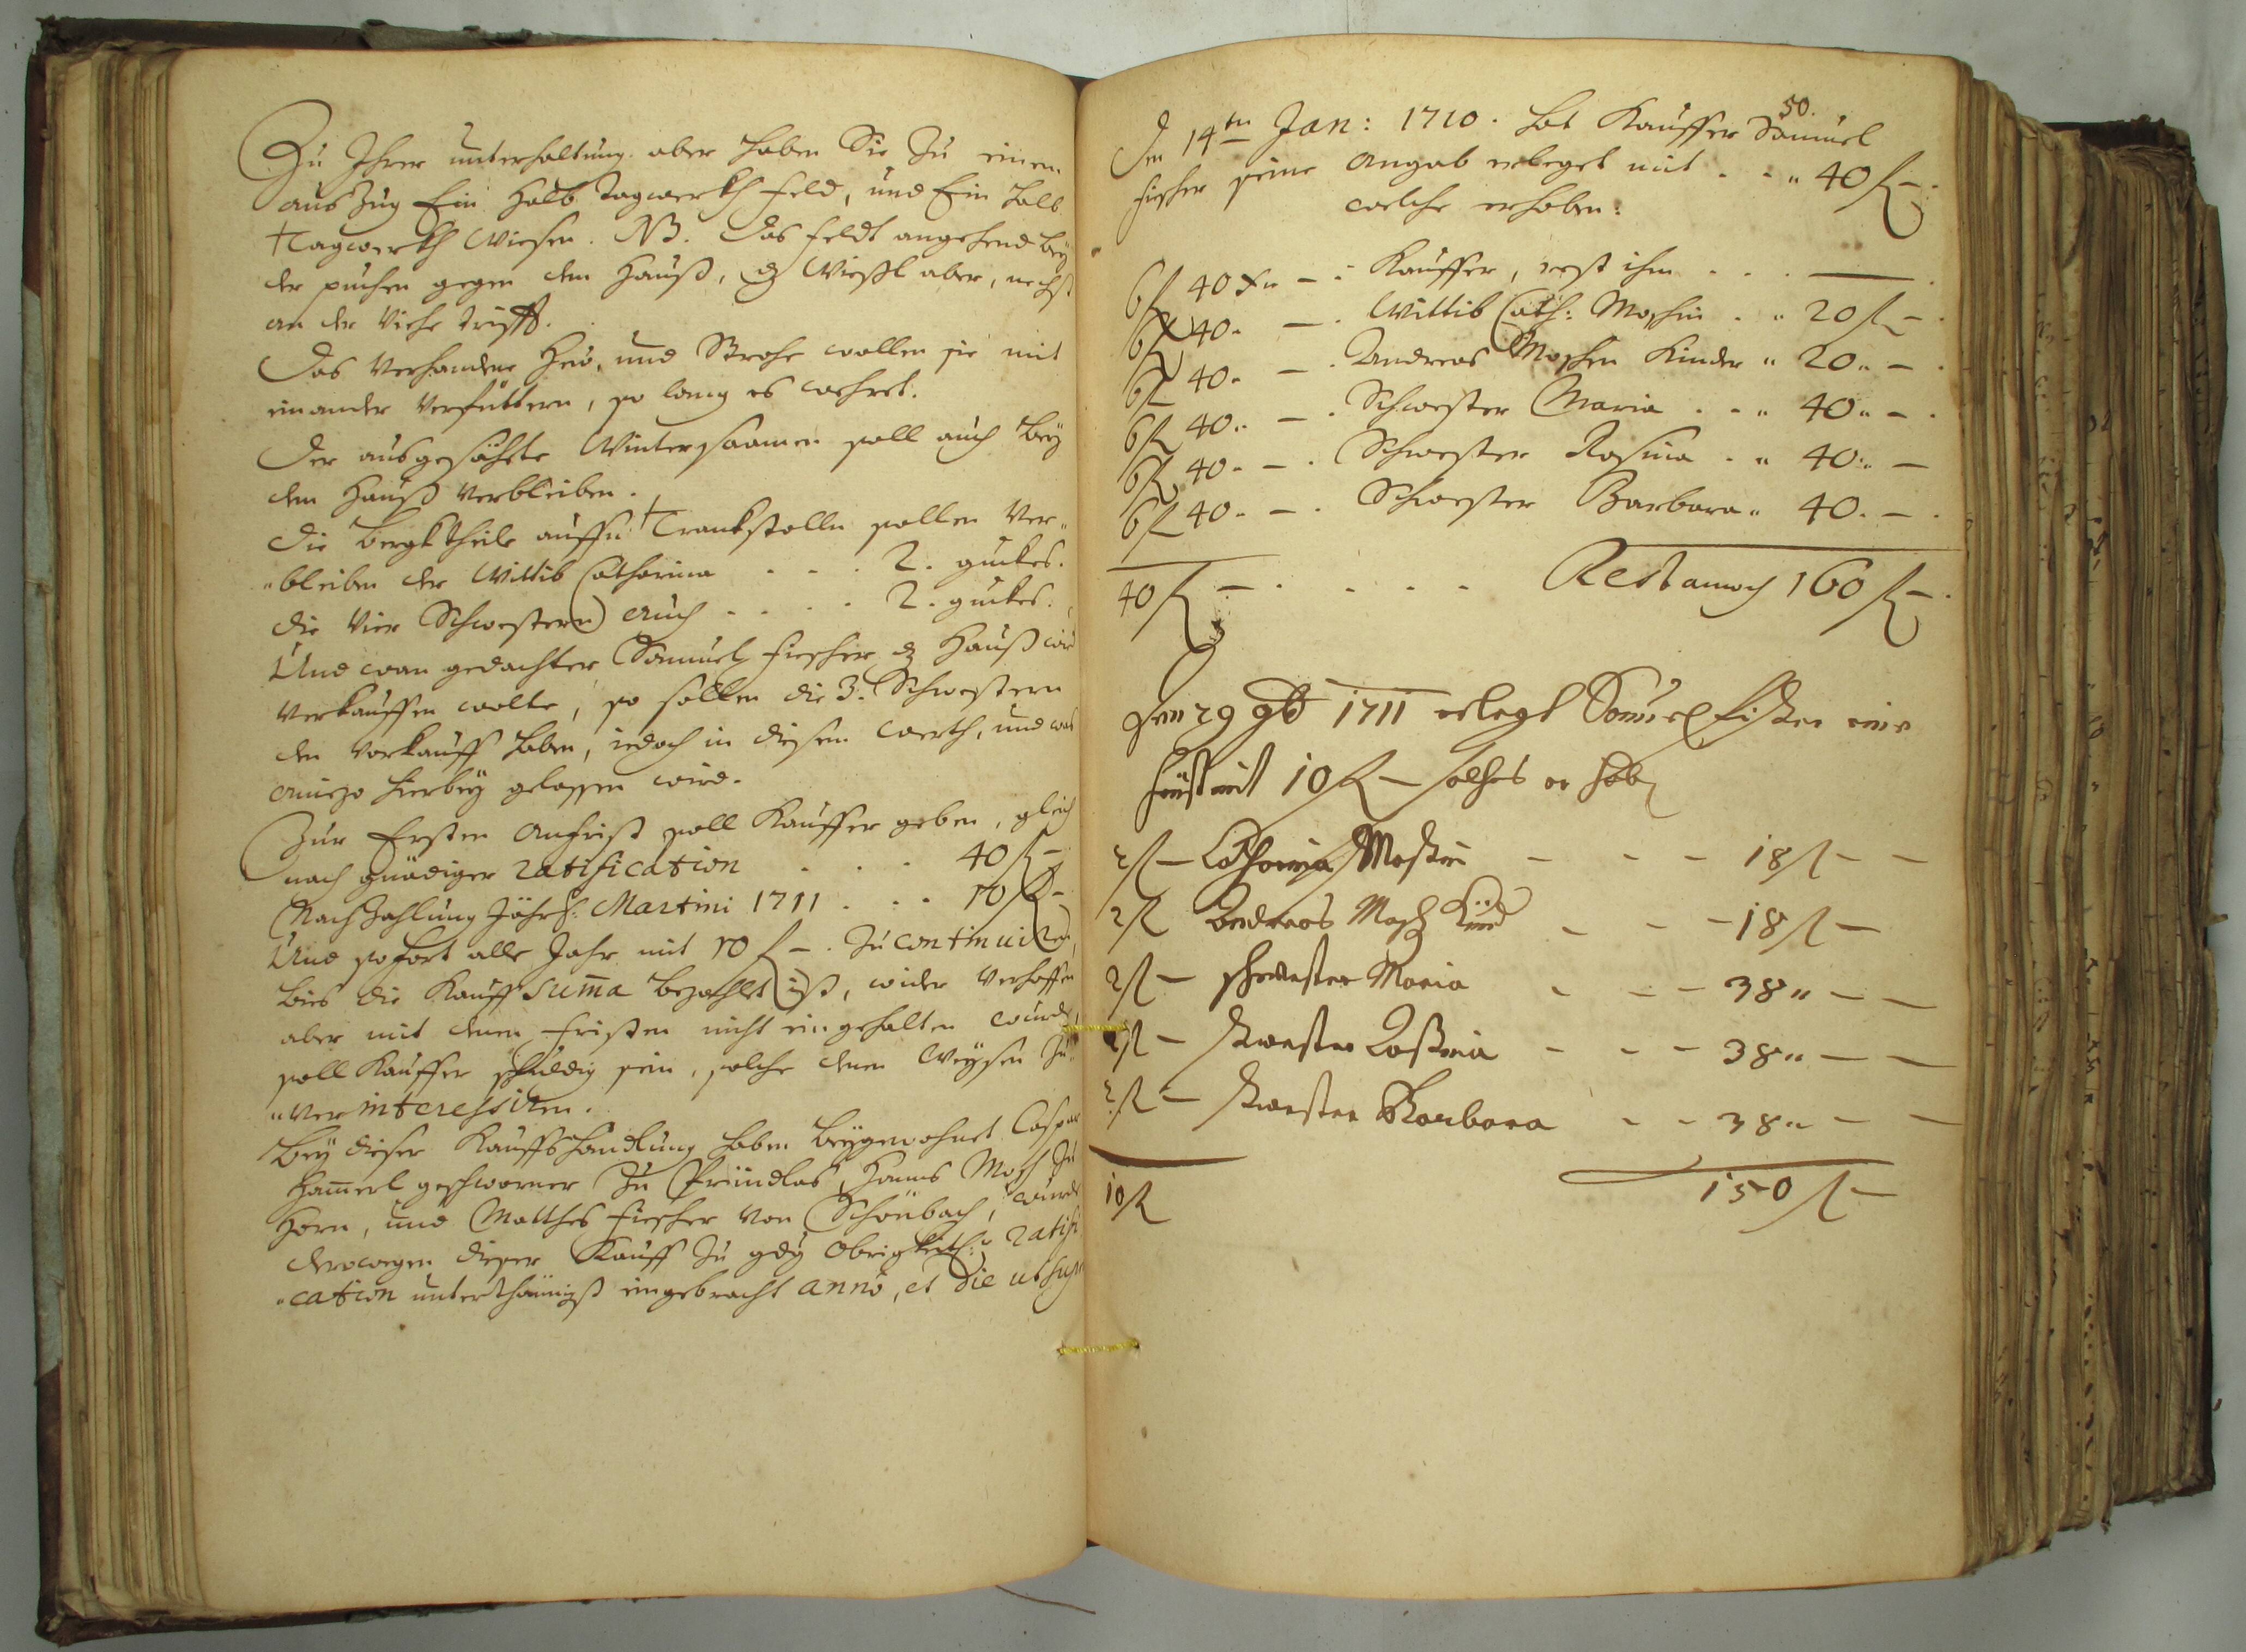 Zu Ihrer unterhaltung aber haben Sie Zu einen
aus Zug Ein Halb tagwerkh feld, und Ein halb
Tagwerkh Wiesen. NB. das feldt angehend bey
der puchen gegen dem Hauß, dz Wießl aber, nechst
an der Viehe trifft.
Das Verhandene Heu, und Strohe wollen sie mit
einander Verfüttern, so lang es wehret.
Der ausgesähte Wintersaamen soll auch bey
dem Hauß Verbleiben.
Die bergktheile auffn Trankstolln sollen Ver„
„bleiben der Wittib Catharina . . . 2. guckes.
die Vier Schwestern auch . . . . 2. guckes.
Und wan gedachter Samuel Fischer dz Hauß
Verkauffen wolte, so sollen die 3. Schwestern
den Vorkauff haben, iedoch in diesem werth, und
aniezo hierbey gelassen wird.
Zur Ersten Anfrist soll Kauffer geben, gleich
nach gnädiger ratification . . . 40 f –
Nach Zahlung Jährl: Martini 1711 . . . 10 f –
Und sofort alle Jahr mit 10 f –. Zu continuiren,
bies die Kauff Suma bezahlet ist, wider Verhoffen
aber mit denen fristen nicht eingehalten würde,
soll Kauffer schuldig sein, solche denen Weysen Zu„
„Verinteressiren.
Bey dieser Kauffshandlung haben beygewohnet Caspar
Hamerl geschworner Zu Pründlas, Hanns Mosch Zu
Horn, und Matthes Fischer von Schönbach, würde
derowegen dieser Kauff Zu gdg Obrigkeitl: ratifi
„cation unterthänigst eingebracht anno, et die ut supr
50.
Den 14ten Jan: 1710. hat Kauffer Samuel
Fischer seine Angab erleget mit . . „ 40 f –.
welche erhoben:
6 f 40 x. – : Kauffer, rest ihm . . . —
6 f 40. – . Wittib Cath: Moschin . „ 20 f – .
6 f 40. – . Andreas Moschen Kinder „ 20 „ – .
6 f 40. – . Schwester Maria . . „ 40 „ – .
6 f 40. – . Schwester Rosina . „ 40 „ –
6 f 40. – . Schwester Barbara „ 40. – .
40 f – . . . . Rest annoch 160 f – .
Den 29 9b 1711 erlegt Samuel Fischer eine
frist mit 10 f – solches er hobn
2 f – Cathorina Moschin – – – 18 f – –
2 f Andreas Mosch Kind – – – 18 f –
2 f – schwester Maria – – – 38 „ – –
2 f – schwester Rossina – – – 38 „ – –
2 f – schwester Barbara – – 38 „ – –
10 f 150 f –